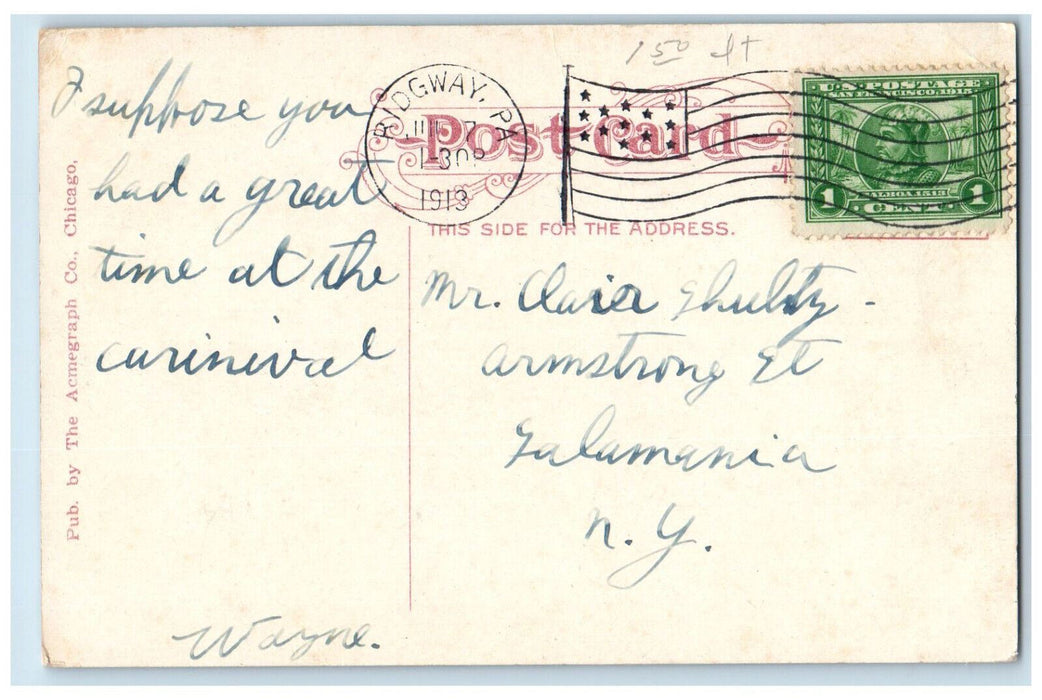 1 50 ft
RIDGWAY, PA
JUL 7
1-30P
1913
Post Card
U.S. POSTAGE
SAN FRANCISCO 1915
BALBOA 1513
1 CENT 1
THIS SIDE FOR THE ADDRESS.
I suppose you
had a great
time at the
carinival
Wayne.
Mr. Clair Shultz -
Armstrong St
Salamania
N.Y.
Pub. by The Acmegraph Co., Chicago.